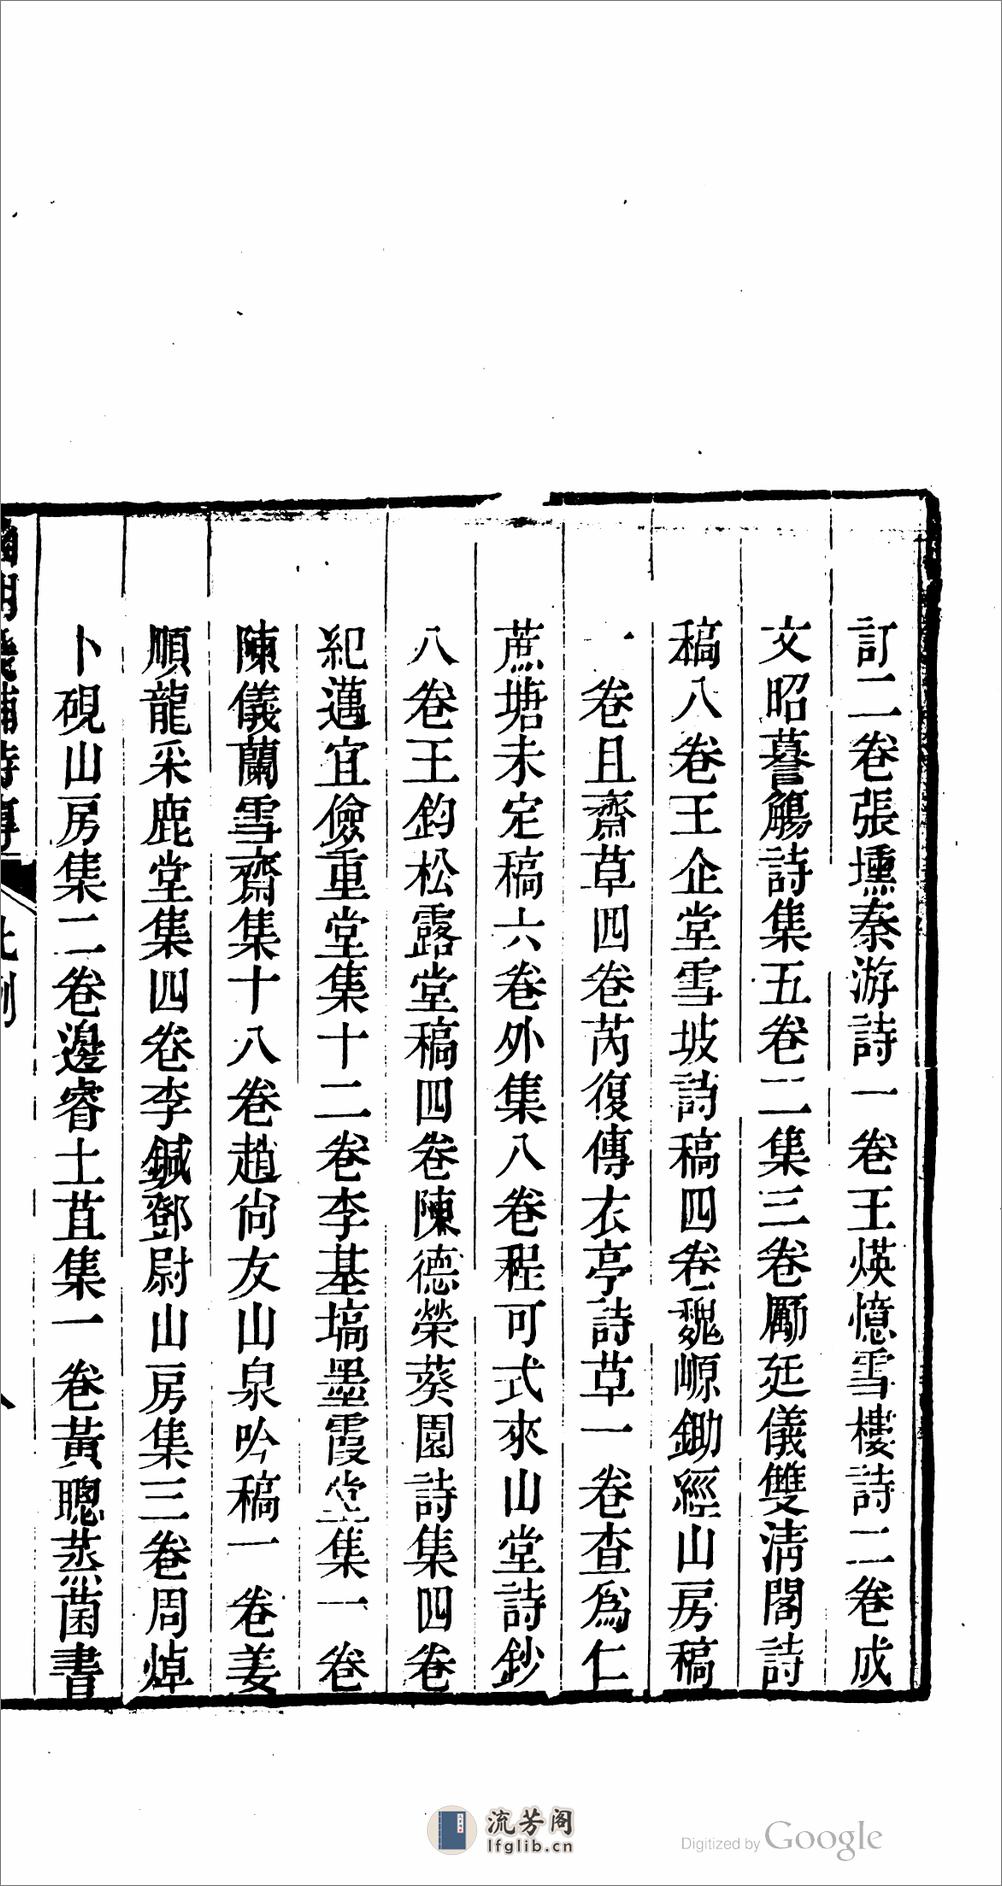 訂二卷張壎秦游詩一卷王煐憶雪樓詩二卷成
文昭謩觴詩集五卷二集三卷勵廷儀雙清閣詩
稿八卷王企堂雪坡詩稿四卷魏㟲鋤經山房稿
一卷且齋草四卷芮復傳衣亭詩草一卷查爲仁
蔗塘未定稿六卷外集八卷程可式來山堂詩鈔
八卷王鈞松露堂稿四卷陳德榮葵園詩集四卷
紀邁宜儉重堂集十二卷李基塙墨霞堂集一卷
陳儀蘭雪齋集十八卷趙尙友山泉吟稿一卷姜
順龍采鹿堂集四卷李鍼鄧尉山房集三卷周焯
卜硯山房集二卷邊睿土苴集一卷黃聰蒸菌書
詩傳
例
八
流芳阁
lfglib.cn
Digitized by Google